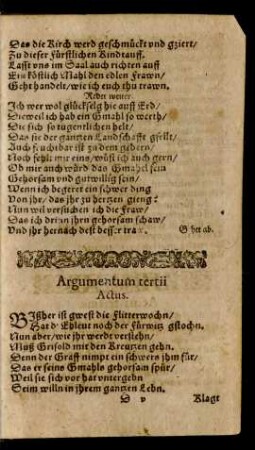 Das die Kirch werd geschmückt vnd gziert/
Zu dieser Fürstlichen Kindtauff.
Lasst vns im Saal auch richten auff
Ein köstlich Mahl den edlen Frawn/
Geht handelt/ wie ich euch thu trawn.
Redet weiter.
Ich wer wol glückselg hie auff Erd/
Dieweil ich hab ein Gmahl so werth/
Die sich so tugentlichen helt/
Das sie der gantzen Landschafft gfellt/
Auch fruchtbar ist zu dem gebern/
Noch fehlt mir eins/ wüst ich auch gern/
Ob mir auch würd das Gmahel sein
Gehorsam vnd gutwillig sein/
Wenn ich begeret ein schwer ding
Von jhr/ das jhr zu hertzen gieng?
Nun wil versuchen ich die Fraw/
Das ich drinn jhrn gehorsam schaw/
Vnd jhr hernach dest besser traw. Geht ab.
Argumentum tertii
Actus.
BIßher ist gwest die Flitterwochn/
Hat d' Ehleut noch der Fürwitz gstochn.
Nun aber/ wie jhr werdt verstehn/
Muß Grisold mit den Kreutzen gehn.
Denn der Graff nimpt ein schwers jhm für/
Das er seins Gmahls gehorsam spür/
Weil sie sich vor hat vntergebn
Seim willn in jhrem gantzen Lebn.
D v Klagt